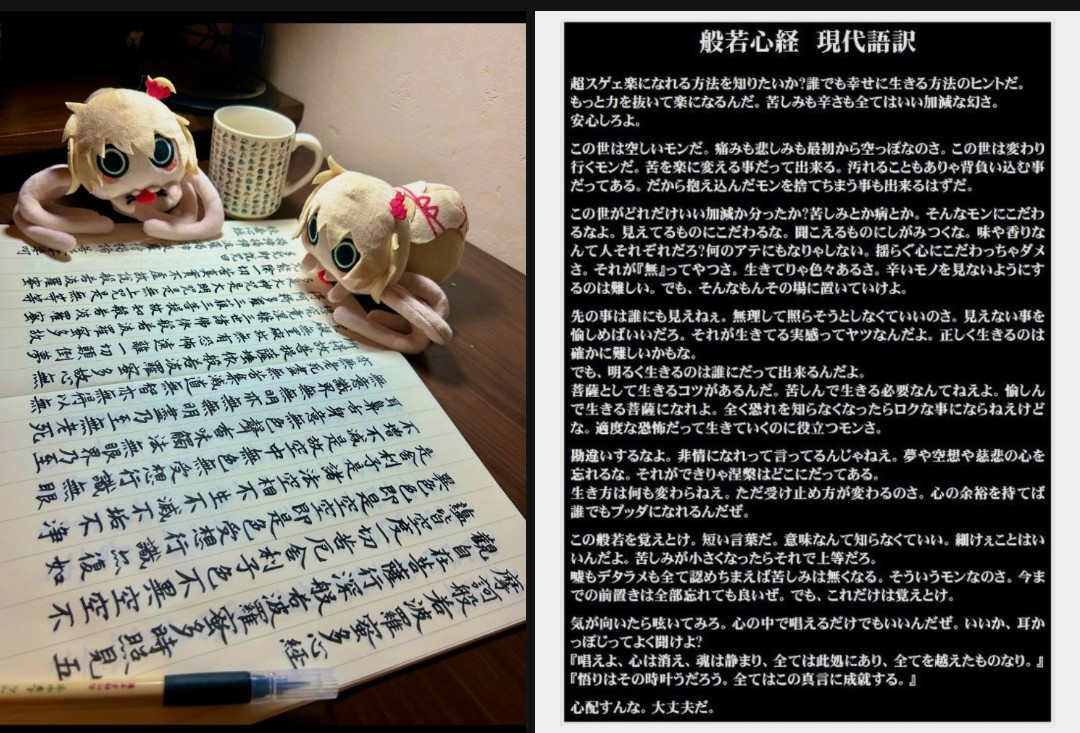 摩訶般若波羅蜜多心経
観自在菩薩行深般若波羅蜜多時照見五
蘊皆空度一切苦厄舎利子色不異空空不
異色色即是空空即是色受想行識亦復如
是舎利子是諸法空相不生不滅不垢不浄
不増不減是故空中無色無受想行識無眼
耳鼻舌身意無色聲香味觸法無眼界乃至
無意識界無無明亦無無明盡乃至無老死
無苦集滅道無智亦無得以無
菩提薩埵依般若波羅蜜多故心無
無罣礙故無有恐怖遠離一切顛倒夢
三世諸佛依般若波羅蜜多故
多羅三藐三菩提故知般若波羅蜜
大神呪是大明呪是無上呪是無等等
能除一切苦真實不虚故説般若波羅蜜
般若心経 現代語訳
超スゲェ楽になれる方法を知りたいか?誰でも幸せに生きる方法のヒントだ。
もっと力を抜いて楽になるんだ。苦しみも辛さも全てはいい加減な幻さ。
安心しろよ。
この世は空しいモンだ。痛みも悲しみも最初から空っぽなのさ。この世は変わり
行くモンだ。苦を楽に変える事だって出来る。汚れることもありゃ背負い込む事
だってある。だから抱え込んだモンを捨てちまう事も出来るはずだ。
この世がどれだけいい加減か分ったか?苦しみとか病とか。そんなモンにこだわ
るなよ。見えてるものにこだわるな。聞こえるものにしがみつくな。味や香りな
んて人それぞれだろ?何のアテにもなりゃしない。揺らぐ心にこだわっちゃダメ
さ。それが『無』ってやつさ。生きてりゃ色々あるさ。辛いモノを見ないようにす
るのは難しい。でも、そんなもんその場に置いていけよ。
先の事は誰にも見えねぇ。無理して照らそうとしなくていいのさ。見えない事を
愉しめばいいだろ。それが生きてる実感ってヤツなんだよ。正しく生きるのは
確かに難しいかもな。
でも、明るく生きるのは誰にだって出来るんだよ。
菩薩として生きるコツがあるんだ。苦しんで生きる必要なんてねえよ。愉しん
で生きる菩薩になれよ。全く恐れを知らなくなったらロクな事にならねえけど
な。適度な恐怖だって生きていくのに役立つモンさ。
勘違いするなよ。非情になれって言ってるんじゃねえ。夢や空想や慈悲の心を
忘れるな。それができりゃ涅槃はどこにだってある。
生き方は何も変わらねえ。ただ受け止め方が変わるのさ。心の余裕を持てば
誰でもブッダになれるんだぜ。
この般若を覚えとけ。短い言葉だ。意味なんて知らなくていい。細けぇことはい
いんだよ。苦しみが小さくなったらそれで上等だろ。
嘘もデタラメも全て認めちまえば苦しみは無くなる。そういうモンなのさ。今ま
での前置きは全部忘れても良いぜ。でも、これだけは覚えとけ。
気が向いたら呟いてみろ。心の中で唱えるだけでもいいんだぜ。いいか、耳か
っぽじってよく聞けよ?
『唱えよ、心は消え、魂は静まり、全ては此処にあり、全てを越えたものなり。』
『悟りはその時叶うだろう。全てはこの真言に成就する。』
心配すんな。大丈夫だ。